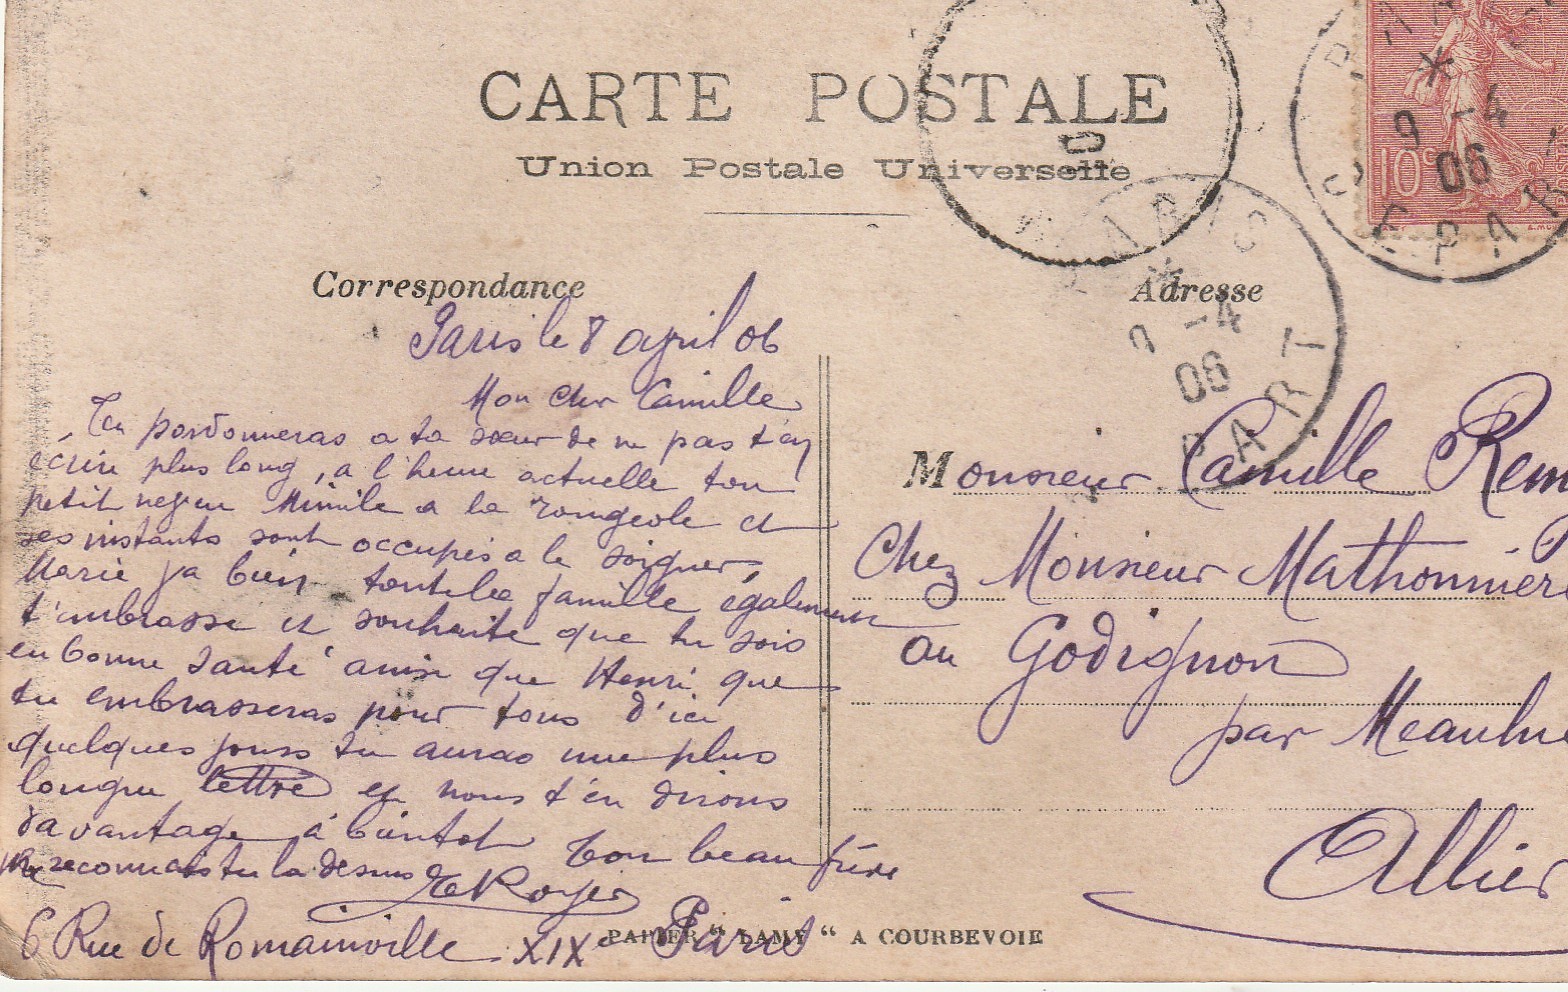 CARTE POSTALE
Union Postale Universelle
Correspondance
Adresse
Paris le 8 april 06
Mon cher Camille
Tu pardonneras a ta sœur de ne pas t'en
écrire plus long, a l'heure actuelle ton
petit neveu Mimile a la rougeole et
ses instants sont occupés a le soigner,
Marie va bien toute la famille également
t'embrasse et souhaite que tu sois
en bonne santé ainsi que Henri que
tu embrasseras pour tous d'ici
quelques jours tu auras une plus
longue lettre et nous t'en dirons
davantage à bientot
Ton beau frère
Me reconnais tu la desus
E Royer
6 Rue de Romainville XIXe Paris
PAPIER "LAMY" A COURBEVOIE
Monsieur Camille Rem
Chez Monsieur Mathonnière
au Godignon
par Meaulne
Allier
10c
9 -4
06
PARIS
9 -4
06
DEPART